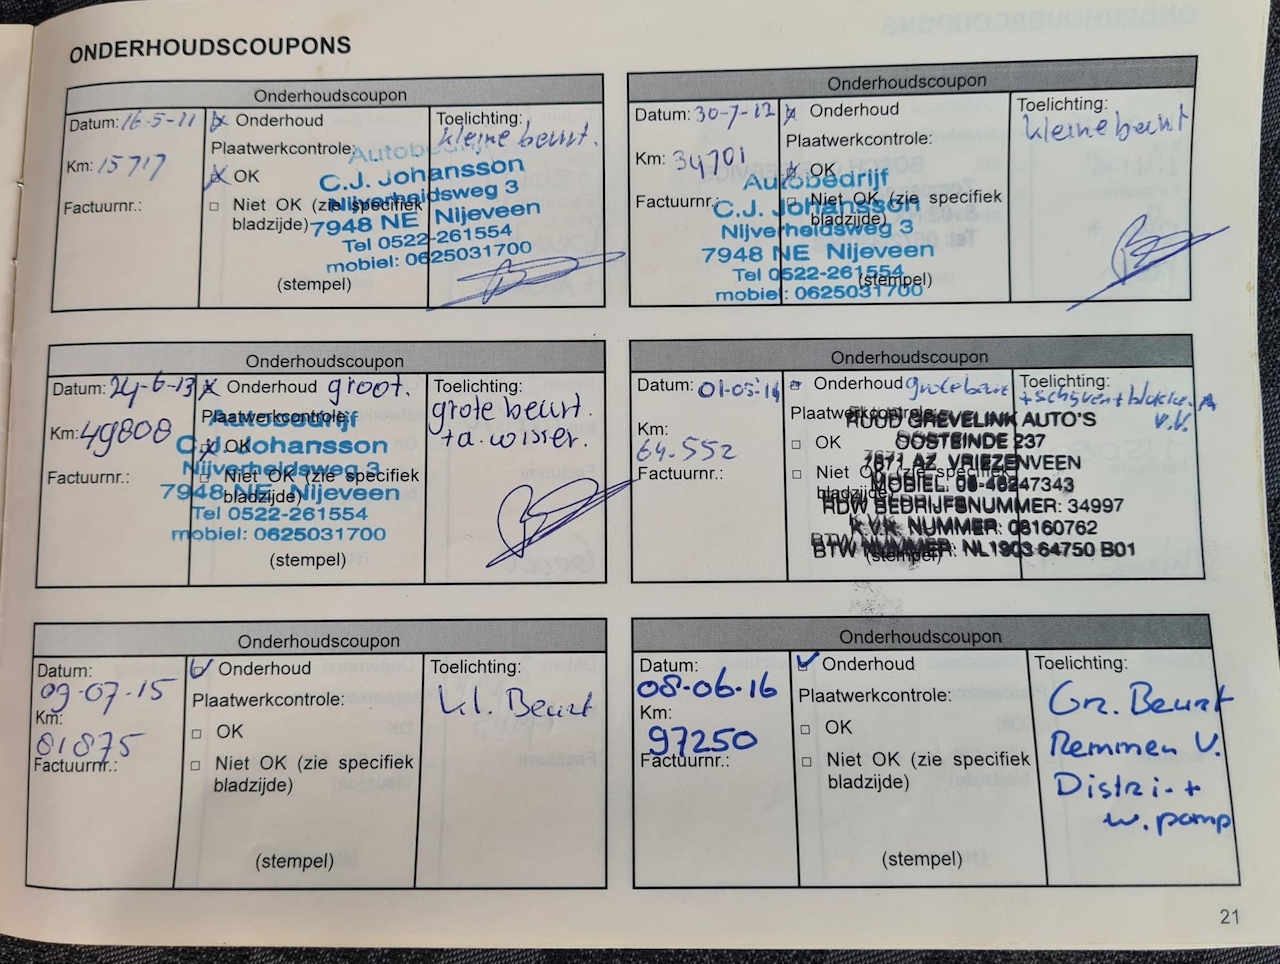 ONDERHOUDSCOUPONS
Onderhoudscoupon
Datum: 16-5-11
Onderhoud
Toelichting:
kleine beurt.
Plaatwerkcontrole:
Km: 15717
OK
Factuurnr.:
Niet OK (zie specifiek
bladzijde)
(stempel)
Autobedrijf
C.J. Johansson
Nijverheidsweg 3
7948 NE Nijeveen
Tel 0522-261554
mobiel: 0625031700
Onderhoudscoupon
Datum: 30-7-12
Onderhoud
Toelichting:
kleine beurt
Plaatwerkcontrole:
Km: 34701
OK
Factuurnr.:
Niet OK (zie specifiek
bladzijde)
(stempel)
Autobedrijf
C.J. Johansson
Nijverheidsweg 3
7948 NE Nijeveen
Tel 0522-261554
mobiel: 0625031700
Onderhoudscoupon
Datum: 24-6-13
Onderhoud groot.
Toelichting:
grote beurt.
+a. wisser.
Plaatwerkcontrole:
Km: 49808
OK
Factuurnr.:
Niet OK (zie specifiek
bladzijde)
(stempel)
Autobedrijf
C.J. Johansson
Nijverheidsweg 3
7948 NE Nijeveen
Tel 0522-261554
mobiel: 0625031700
Onderhoudscoupon
Datum: 01-05-14
Onderhoud grote beurt
Toelichting:
+ schijven + blokke. A
v.V.
Plaatwerkcontrole:
Km:
64.552
OK
Factuurnr.:
Niet OK (zie specifiek
bladzijde)
(stempel)
RUUD GREVELINK AUTO'S
OOSTEINDE 237
7671 AZ VRIEZENVEEN
MOBIEL: 06-46247343
RDW BEDRIJFSNUMMER: 34997
K.V.K. NUMMER: 08160762
BTW NUMMER: NL1903 64750 B01
Onderhoudscoupon
Datum:
09-07-15
Onderhoud
Toelichting:
kl. Beurt
Plaatwerkcontrole:
Km:
81875
OK
Factuurnr.:
Niet OK (zie specifiek
bladzijde)
(stempel)
Onderhoudscoupon
Datum:
08-06-16
Onderhoud
Toelichting:
Gr. Beurt
Remmen V.
Distri. +
w. pomp
Plaatwerkcontrole:
Km:
97250
OK
Factuurnr.:
Niet OK (zie specifiek
bladzijde)
(stempel)
21